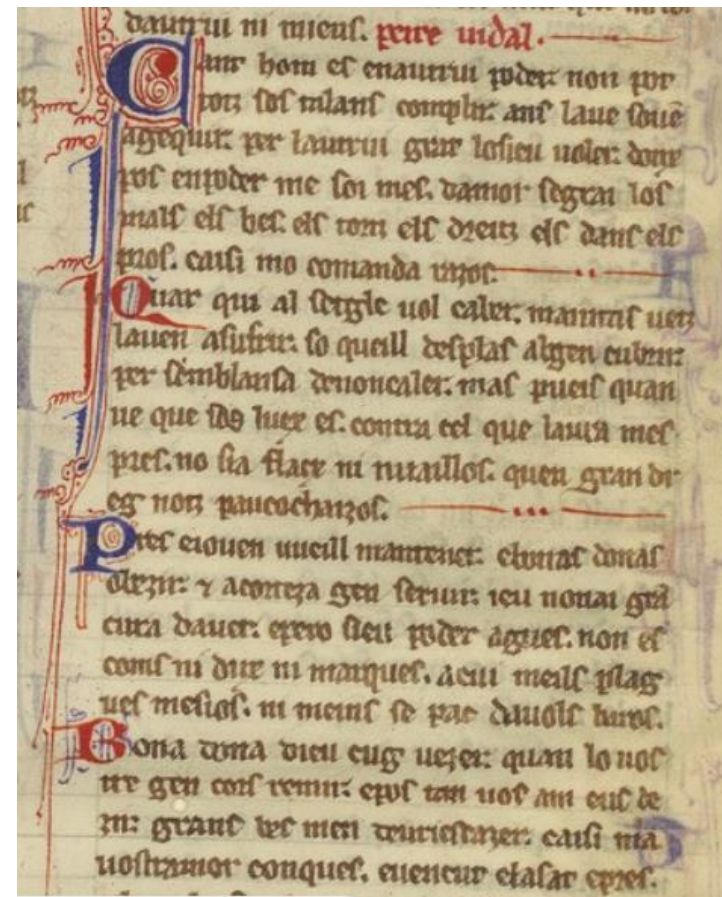 dautrui ni mieus. peire uidal.
Cant hom es enautrui poder. non pot
totz sos talans complir. ans laue souē
agequir. per lautrui grat losieu uoler. donc
pos enpoder me soi mes. damor segrai los
mals els bes. els tortz els dreitz els dans els
pros. caisi mo comanda razos.
Quar qui al segle uol caber. maintas uetz
lauen asufrir. so queill desplas abgen cubrir.
per semblansa denoncaler. mas pueis quan
ue que sos luex es. contra cel que laura mes
pres. no sia flacx ni nuaillos. quen gran dr
eg notz pauc ochaizos.
Pretz e iouen uueill mantener. e bonas donas
obezir. ⁊ acorteza gen seruir. ieu nonai grā
cura dauer. e pero sieu poder agues. non es
coms ni ducx ni marques. a cui meils plag
ues mesios. ni meins se pac dauols baros.
Bona dona dieu cug uezer. quan lo uos
tre gen cors remir. e pos tan uos am eus de
zir. grans bes men deuriesdazer. caisi ma
uostramor conques. e uencut e lasat e pres.